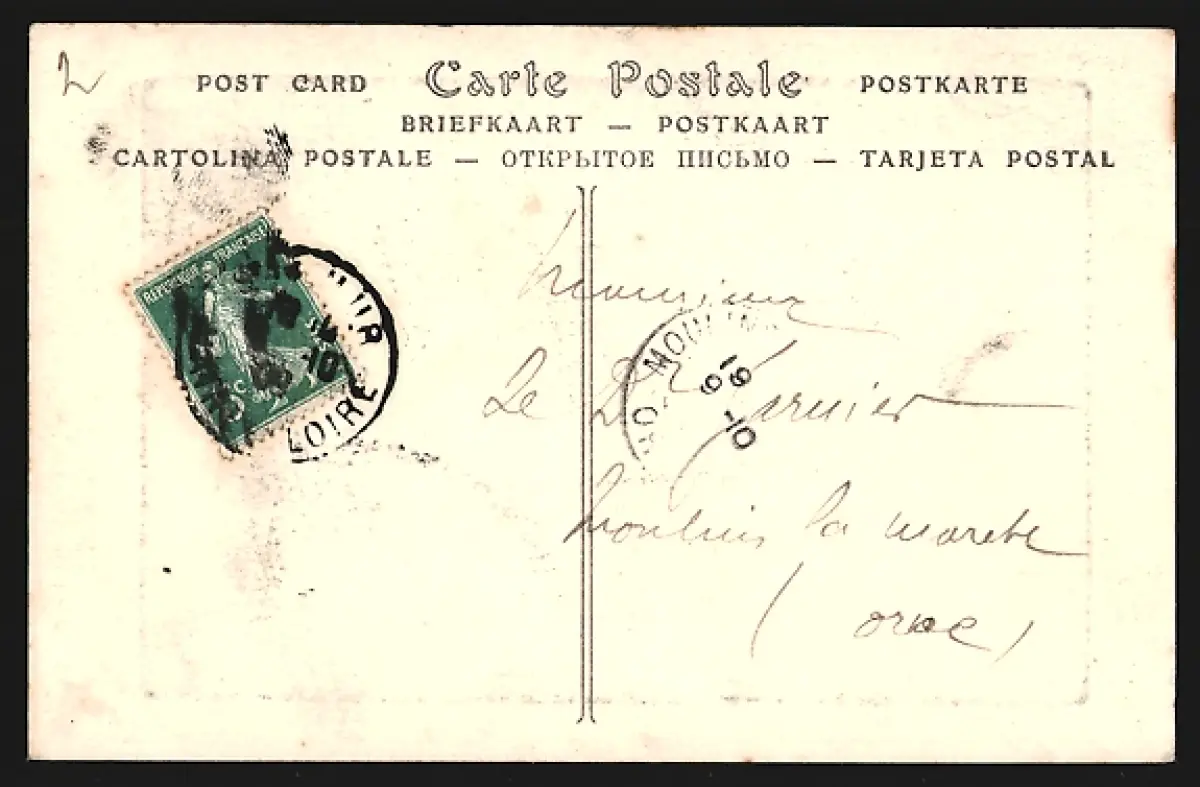 2
POST CARD Carte Postale POSTKARTE
BRIEFKAART — POSTKAART
CARTOLINA POSTALE — ОТКРЫТОЕ ПИСЬМО — TARJETA POSTAL
REPUBLIQUE FRANÇAISE
LOIRE
10
MOULINS
19
9
-10
Monsieur
Le Dr Garnier
Moulins la marche
(orne)